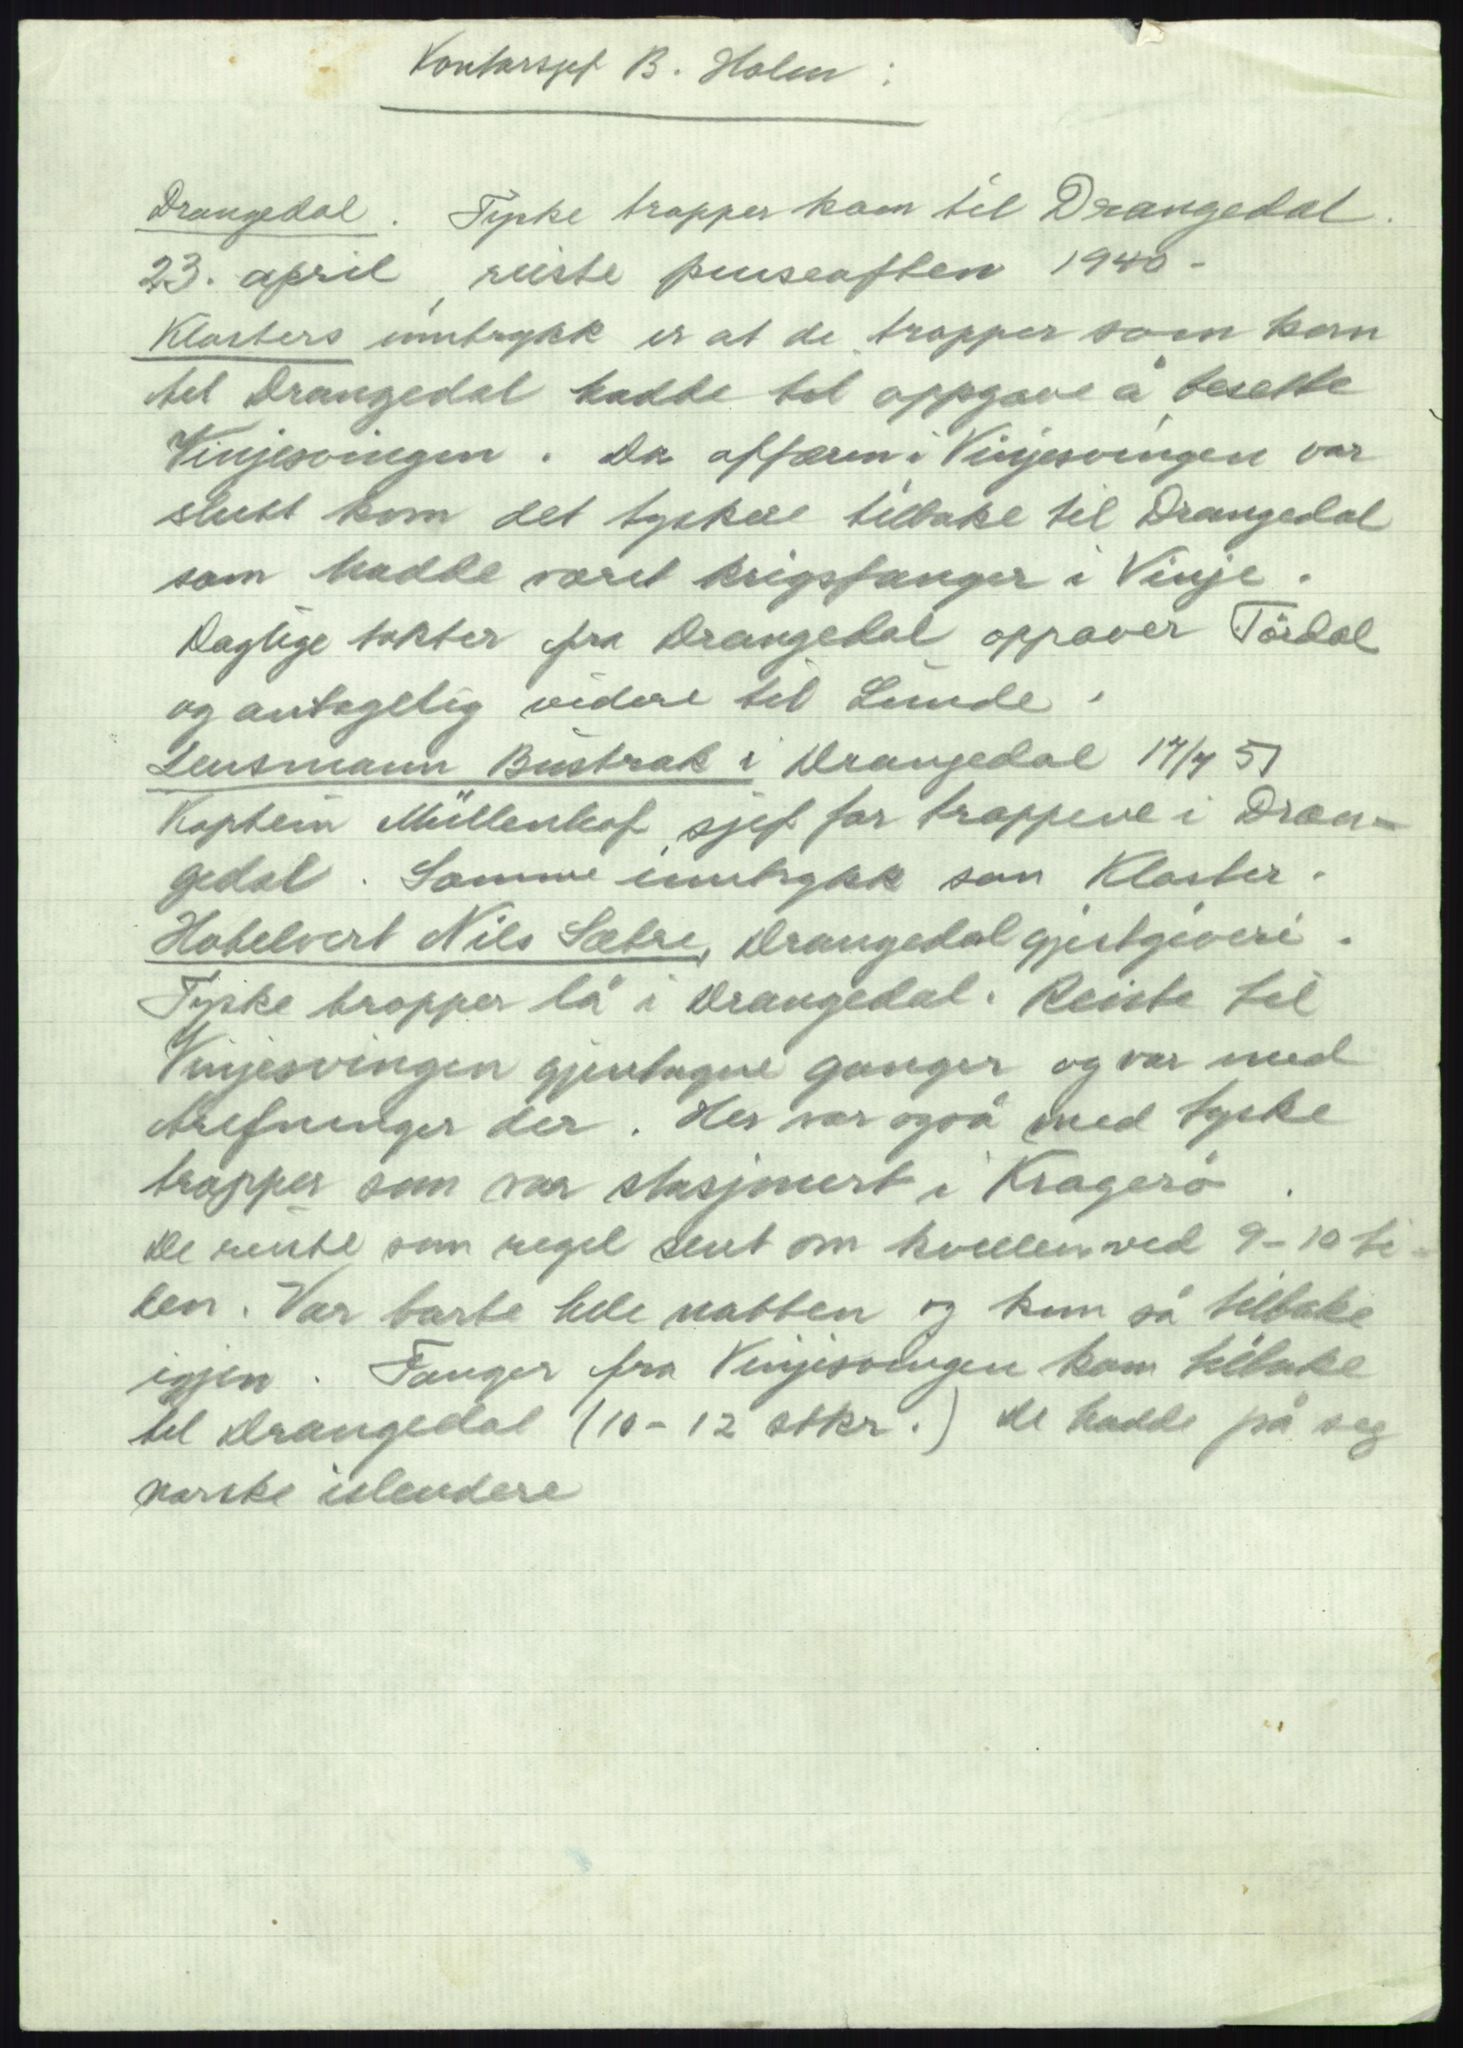 Kontorsjef B. Holm :
Drangedal. Tyske tropper kom til Drangedal.
23. april, reiste pinseaften 1940 -
Klosters inntrykk er at de tropper som kom
til Drangedal hadde til oppgave å besette
Vinjesvingen. Da affæren i Vinjesvingen var
slutt kom det tyskere tilbake til Drangedal
som hadde været krigsfanger i Vinje.
Daglige tokter fra Drangedal oppover Tördal
og antagelig videre til Lunde.
Lensmann Bustrak i Drangedal 17/7 51
Kaptein Müllenhof sjef for troppene i Dran-
gedal. Samme inntrykk som Kloster.
Hotelvert Nils Sætre, Drangedal gjestgiveri.
Tyske tropper lå i Drangedal. Reiste til
Vinjesvingen gjentagne ganger og var med
trefninger der. Her var også med tyske
tropper som var stasjonert i Kragerö.
De reiste som regel sent om kvellen ved 9-10 ti-
den. Var borte hele natten og kom så tilbake
igjen. Fanger fra Vinjesvingen kom tilbake
til Drangedal (10-12 stkr.) De hadde på seg
norske islendere